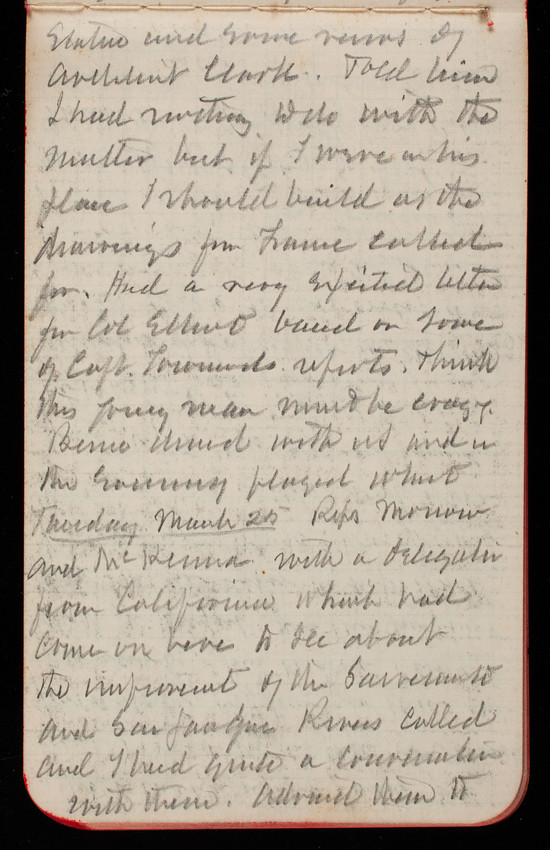 Statue and some views of
Architect Clark. Told him
I had nothing to do with the
matter but if I were in his
place I should build as the
drawings from France called
for. Had a very excited letter
from Col Elliot based on some
of Capt. Townsends reports. Think
this young man must be crazy.
dined with us and in
the Evening played whist
Tuesday March 25 Reps Morrow
and McKenna with a delegation
from California which had
come on here to see about
the improvement of the Sacramento
and San Joaquin Rivers called
and I had quite a conversation
with them. Advised them to